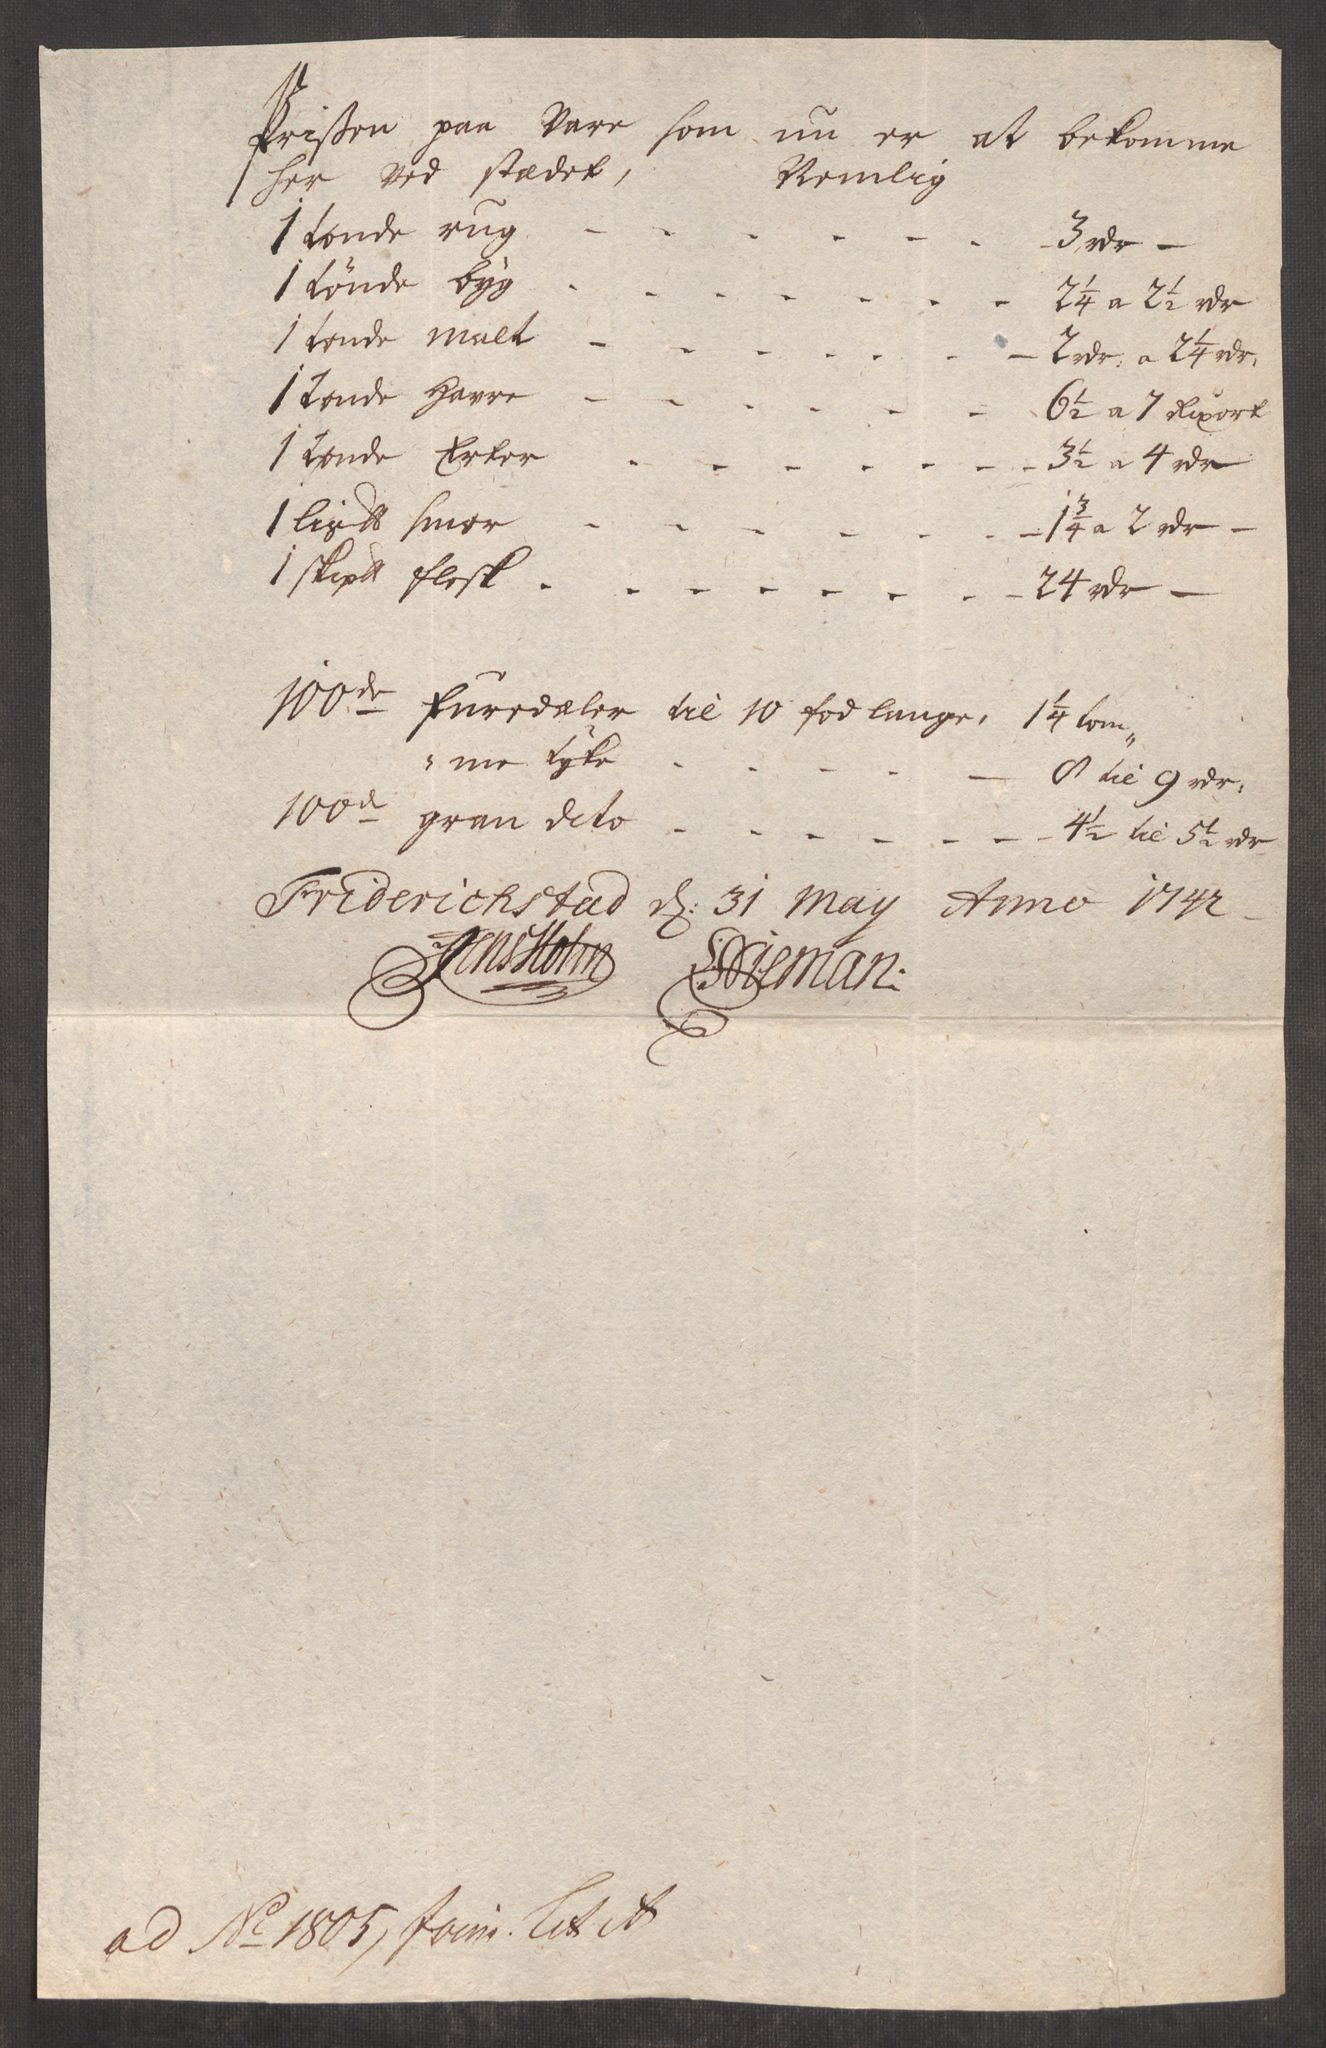 Prisßen paa Vare som nu er at bekomme
her ved stædet, Nemlig
1 tønde rug - - - - - - - 3 rdr -
1 tönde byg - - - - - - - 2¼ a 2½ rdr
1 tønde malt - - - - - - - 2 rdr: a 2¼ rdr.
1 Tønde Havre - - - - - - 6½ a 7 Rixort
1 tønde Erter - - - - - - - 3½ a 4 rdr
1 lis℔ smør - - - - - - - 1¾ a 2 rdr -
1 skip℔ flesk - - - - - - - - 24 rdr -
100de furedæler til 10 fod lange, 1¼ tom„
„me tyke - - - - - 8 til 9 rdr.
100de gran dito - - - - - - - 4½ til 5½ rdr
Friderichstad d: 31 May Anno 1742
Jens Holm Nieman:
ad No 1805, Lit